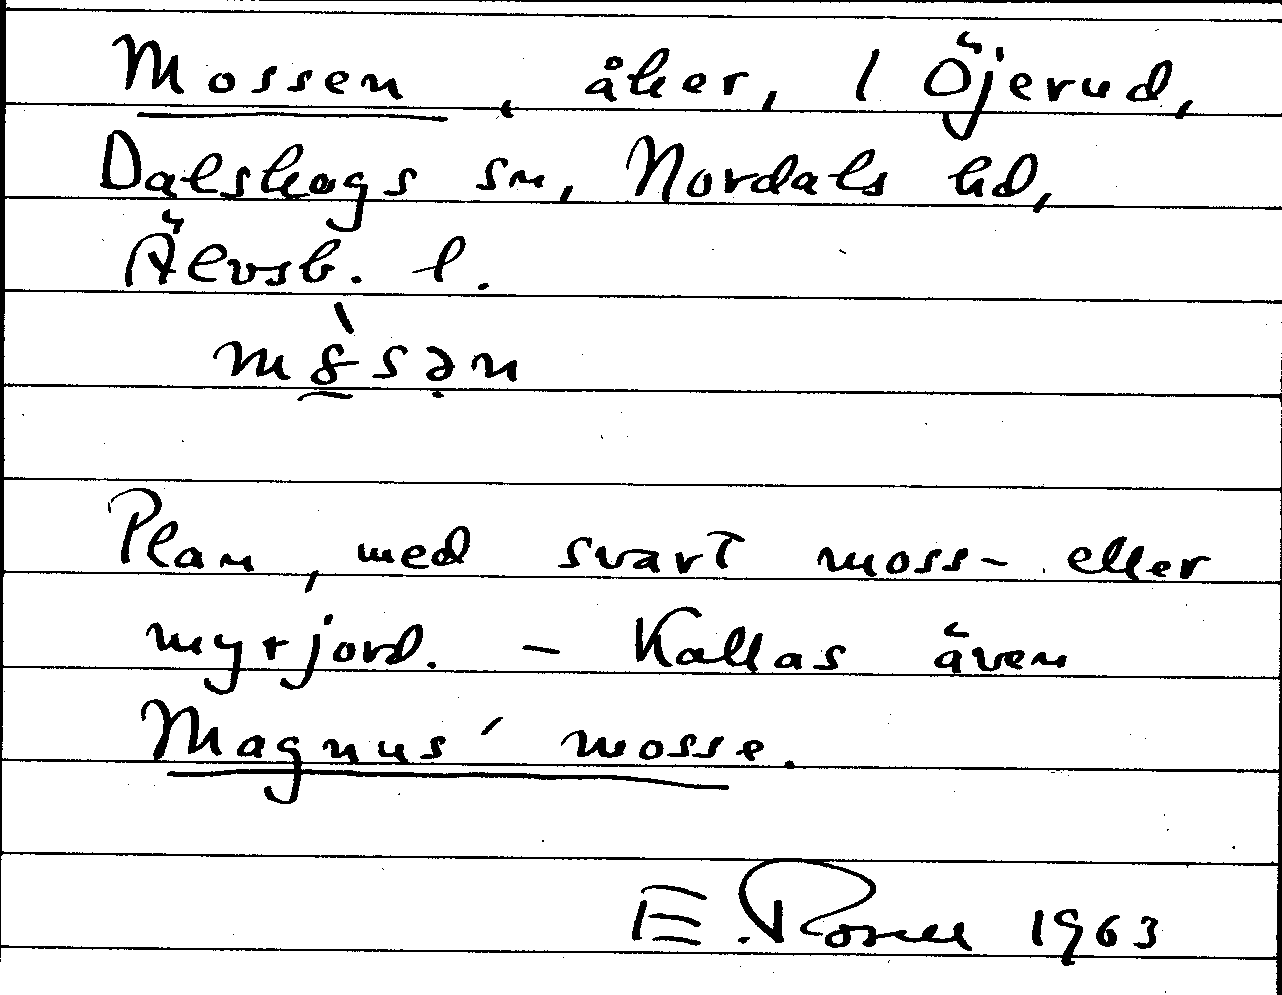 Mossen, åker, 1 Öjerud,
Dalskogs sn, Nordals hd,
Älvsb. l.
Plan, med svart moss- eller
myrjord. – Kallas även
Magnus' mosse.
E. 1963